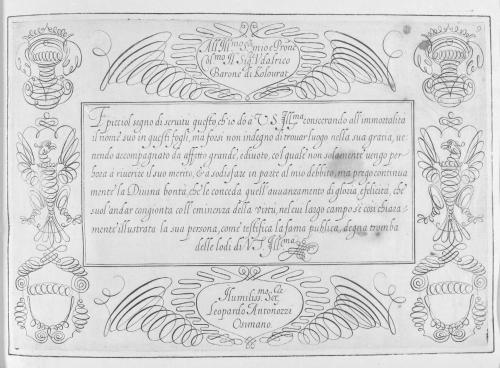 All' Ill.mo Sig.r mio e Prōne
Il Sig.r Vdalrico
Barone di Kolourat
E picciol segno di seruitu questo ch'io do à V.S. Ill.ma consecrando all'immortalità
il nome suo in questi fogli, ma forsi non indegno di trouar luogo nella sua gratia, ue-
nendo accompagnato da affetto grande, e diuoto, col quale non solamente uengo per
hora à riuerire il suo merito, & à sodisfare in parte al mio debbito, ma prego continua
mente la Diuina bontà, che le conceda quell'auuanzamento di gloria, e felicità, che
suol'andar congionta coll'eminenza della virtù, nel cui largo campo s'è così chiara
mente illustrata la sua persona, come testifica la fama publica, degna tromba
delle lodi di V.S. Ill.ma
Humiliss.mo Ser.
Leopardo Antonozzi
Osimano.